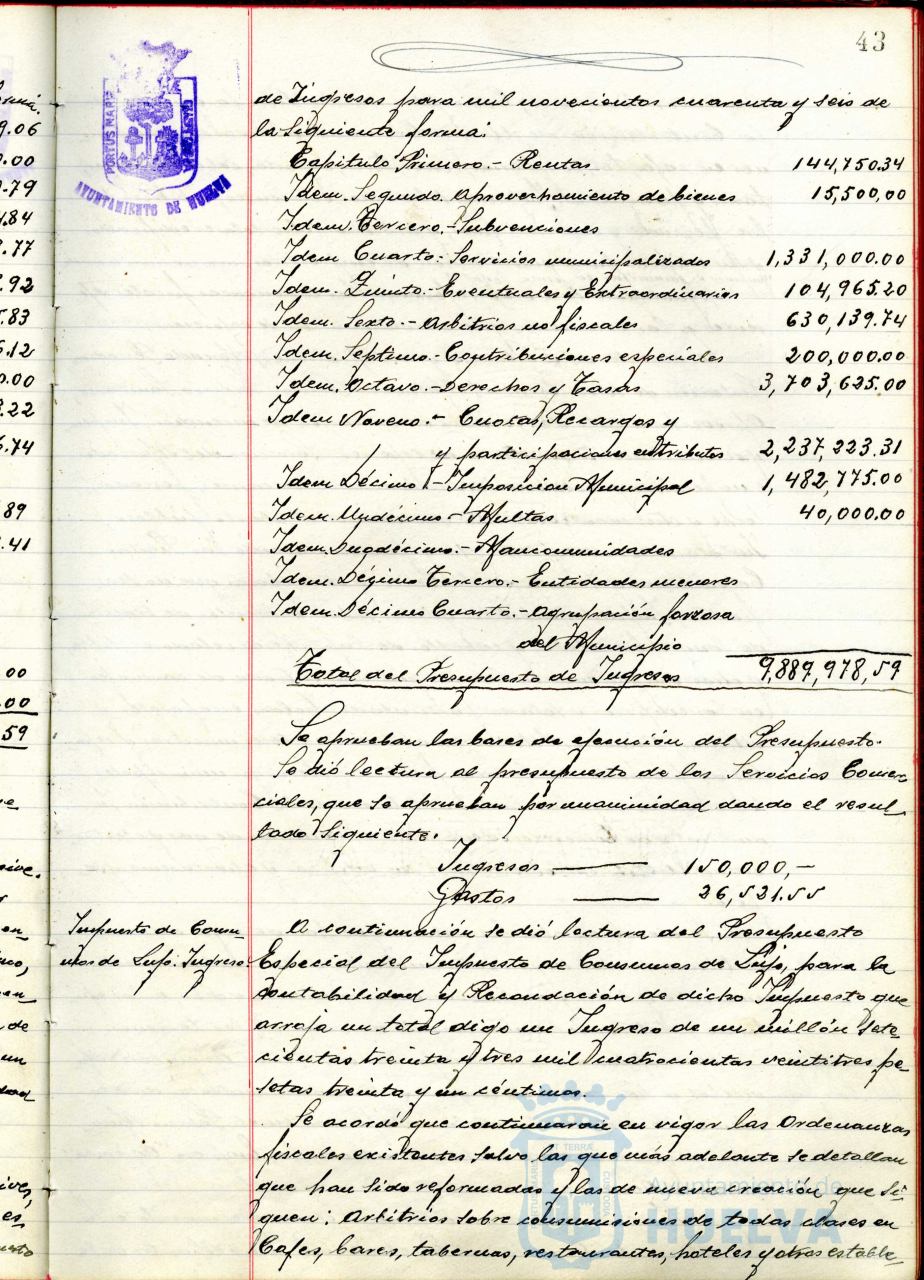 43
PORTUS MARIS
AYUNTAMIENTO DE HUELVA
de Ingresos para mil novecientos cuarenta y seis de
la siguiente forma:
Capitulo Primero.- Rentas 144,750.34
Idem. Segundo. Aprovechamiento de bienes 15,500,00
Idem. Tercero.- Subvenciones
Idem Cuarto.- Servicios municipalizados 1,331,000.00
Idem. Quinto.- Eventuales y Extraordinarios 104,965.20
Idem. Sexto.- Arbitrios no fiscales 630,139.74
Idem. Septimo.- Contribuciones especiales 200,000.00
Idem. Octavo.- Derechos y Tasas 3,703,625.00
Idem Noveno.- Cuotas, Recargos y
y participaciones entributos 2,237,223.31
Idem Décimo.- Imposición Municipal 1,482,775.00
Idem. Undécimo.- Multas 40,000.00
Idem. Duodécimo.- Mancomunidades
Idem. Décimo Tercero.- Entidades menores
Idem. Décimo Cuarto.- Agrupación forzosa
del Municipio
Total del Presupuesto de Ingresos 9,889,978,59
Se aprueban las bases de ejecución del Presupuesto.
Se dió lectura al presupuesto de los Servicios Comer-
ciales, que se aprueban por unanimidad dando el resul-
tado siguiente.
Ingresos 150,000,-
Gastos 26,521.55
Impuesto de Consu-
mos de Lujo. Ingresos.
A continuación se dió lectura del Presupuesto
Especial del Impuesto de Consumos de Lujo, para la
contabilidad y Recaudación de dicho Impuesto que
arroja un total digo un Ingreso de un millón sete-
cientas treinta y tres mil cuatrocientas veintitres pe-
setas treinta y un céntimos.
Se acordó que continuaran en vigor las Ordenanzas
fiscales existentes salvo las que más adelante se detallan
que han sido reformadas y las de nueva creación que si-
guen: Arbitrios sobre consumisiones de todas clases en
Cafes, bares, tabernas, restaurantes, hoteles y otros estable-
Ayuntamiento de
HUELVA